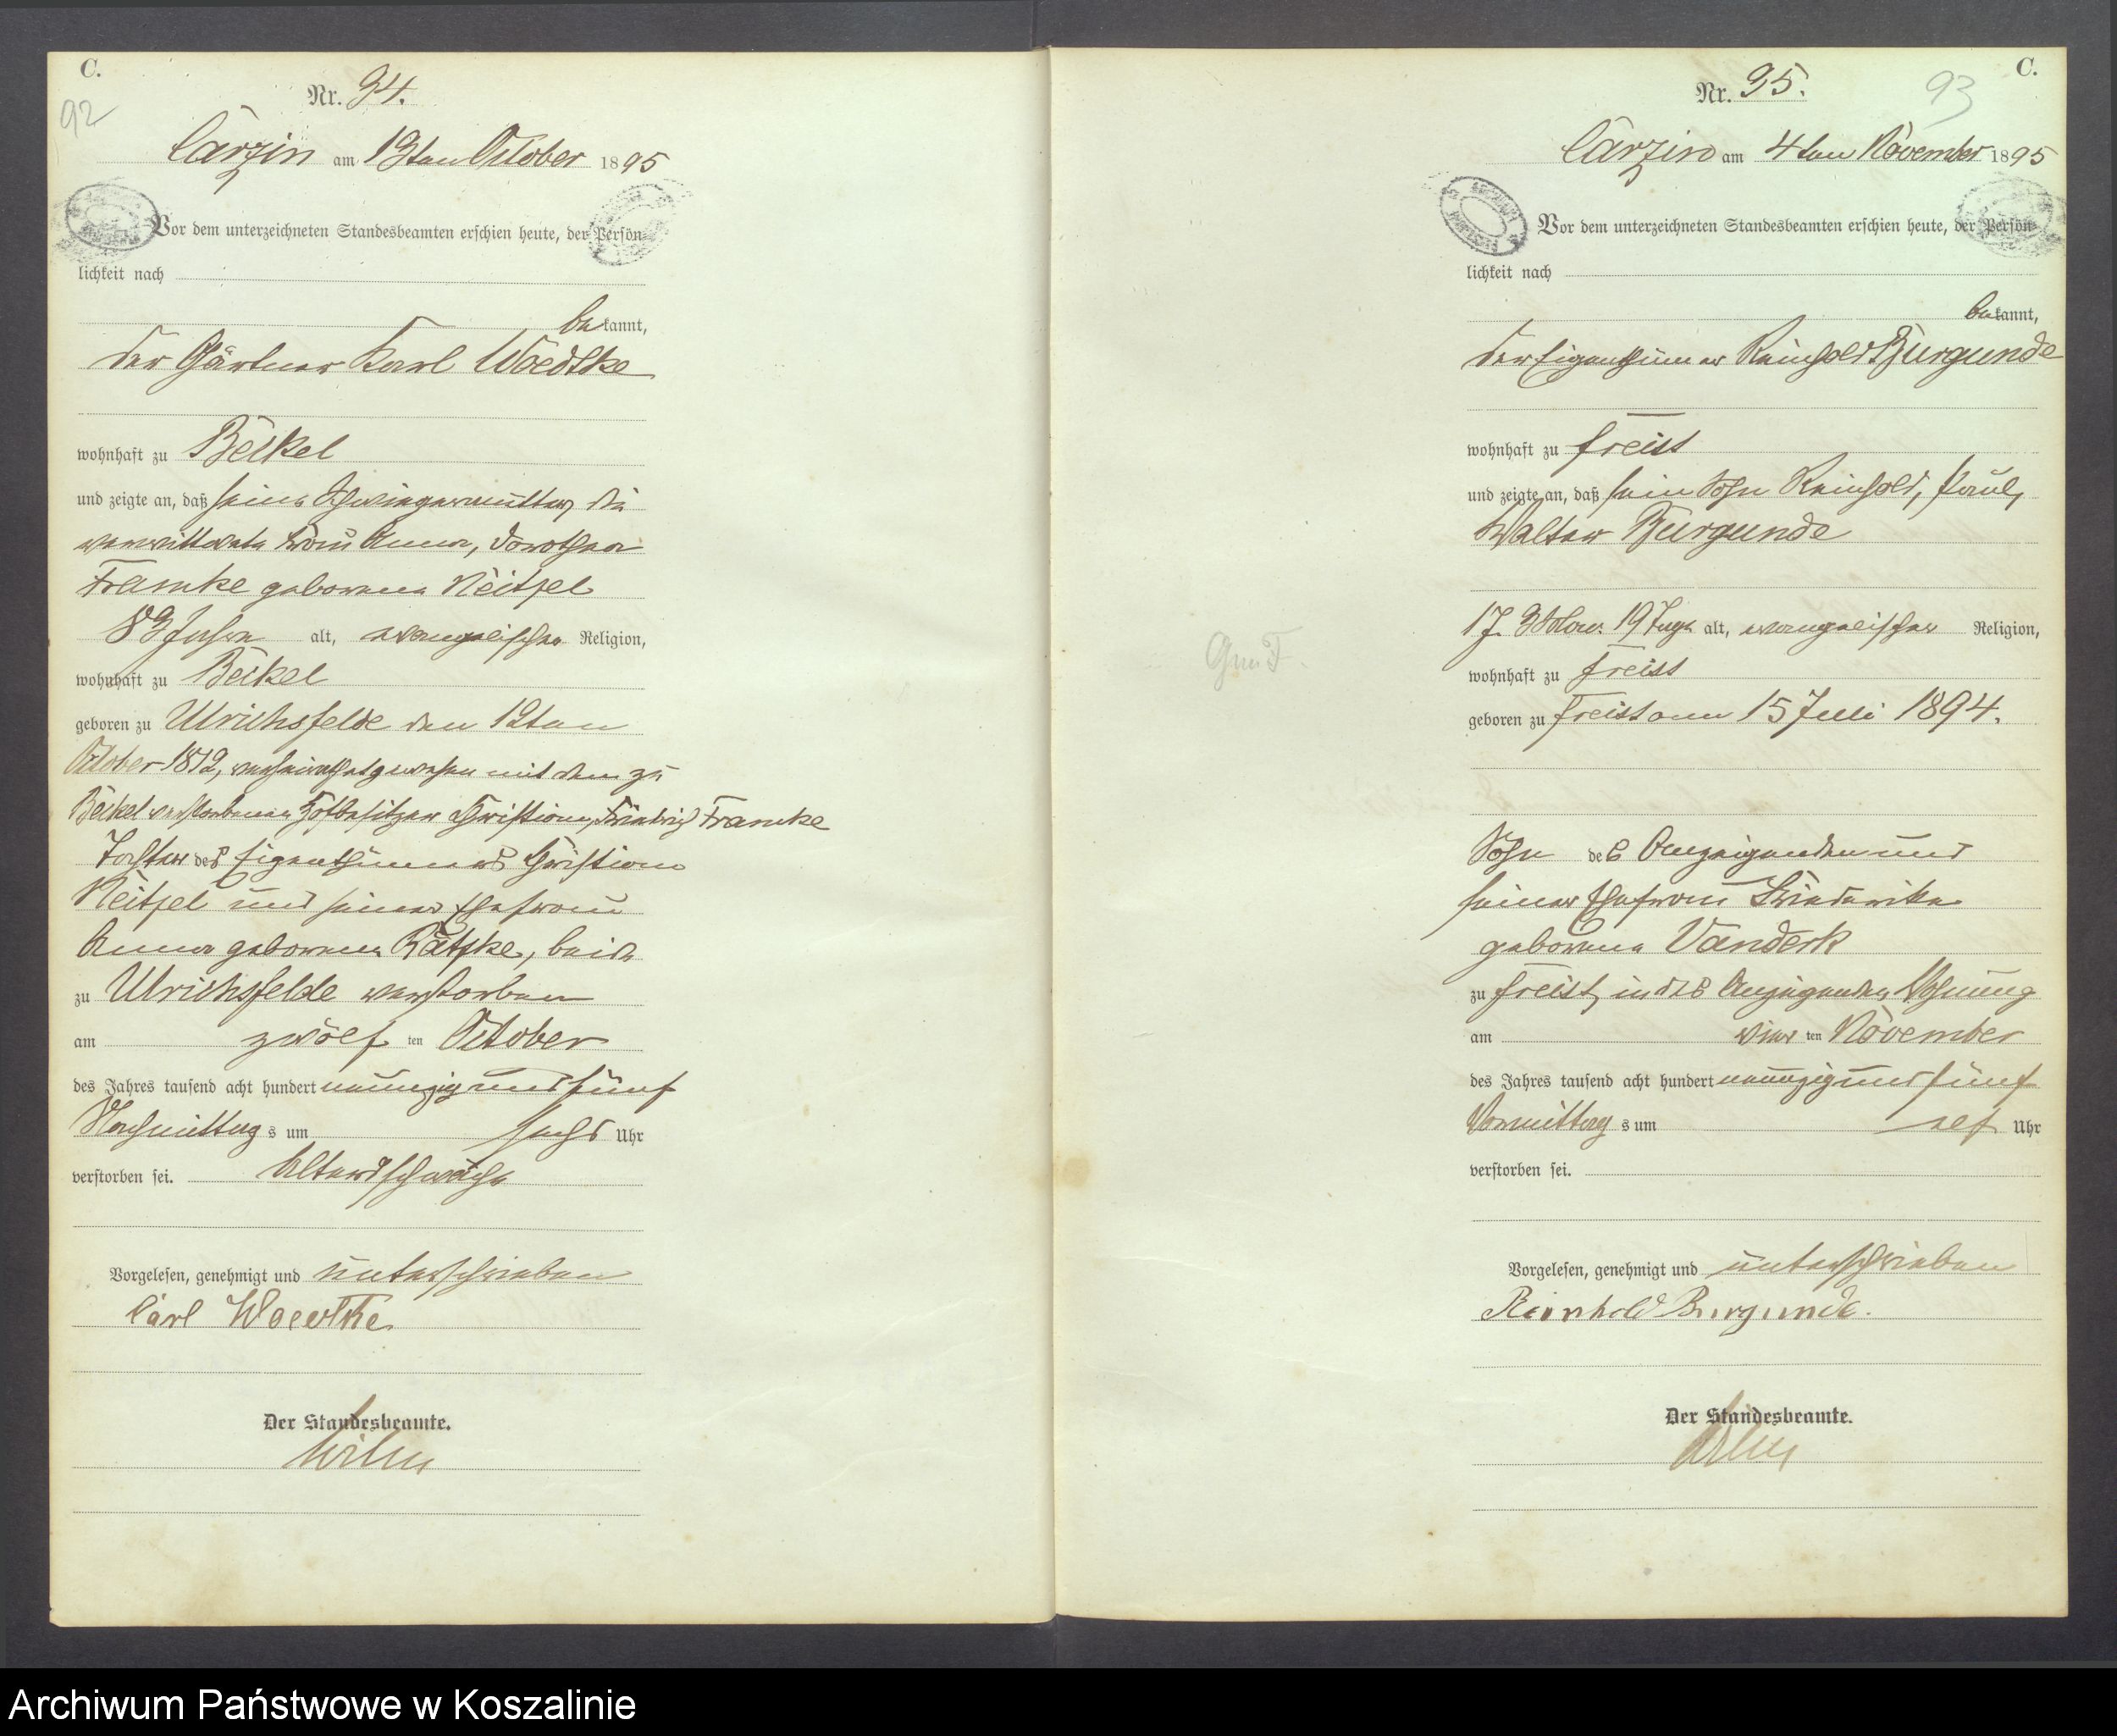 C.
92
Nr. 94.
Carzin am 13ten October 1895
Vor dem unterzeichneten Standesbeamten erschien heute, der Persön-
lichkeit nach
bekannt,
der Gärtner Karl Woedtke
wohnhaft zu Beckel
und zeigte an, daß seine Schwiegermutter, die
verwittwete Frau Anna, Dorothea
Framke geborene Neitzel
83 Jahre alt, evangelischer Religion,
wohnhaft zu Beckel
geboren zu Ulrichsfelde den 12ten
October 1812, verheirathet gewesen mit dem zu
Beckel verstorbenen Hofbesitzer Christian, Friedrich Framke
Tochter des Eigenthümers Christian
Neitzel und seiner Ehefrau
Anna geborene Rätzke, beide
zu Ulrichsfelde verstorben
am zwölf ten October
des Jahres tausend acht hundert neunzig und fünf
Nachmittag s um sechs Uhr
verstorben sei. Altersschwäche
Vorgelesen, genehmigt und unterschrieben
Carl Woedtke
Der Standesbeamte.
C.
93
Nr. 95.
Carzin am 4ten November 1895
Vor dem unterzeichneten Standesbeamten erschien heute, der Persön-
lichkeit nach
bekannt,
der Eigenthümer Reinhold Burgunde
wohnhaft zu Freist
und zeigte an, daß sein Sohn Reinhold, Paul,
Walter Burgunde
1 J. 3 Mon. 19 Tage alt, evangelischer Religion,
wohnhaft zu Freist
geboren zu Freist am 15 Juli 1894.
Sohn des Anzeigenden und
seiner Ehefrau Friederike
geborene Vanderk
zu Freist, in des Anzeigenden Wohnung
am vier ten November
des Jahres tausend acht hundert neunzig und fünf
Vormittag s um elf Uhr
verstorben sei.
Vorgelesen, genehmigt und unterschrieben
Reinhold Burgunde.
Der Standesbeamte.
Archiwum Państwowe w Koszalinie